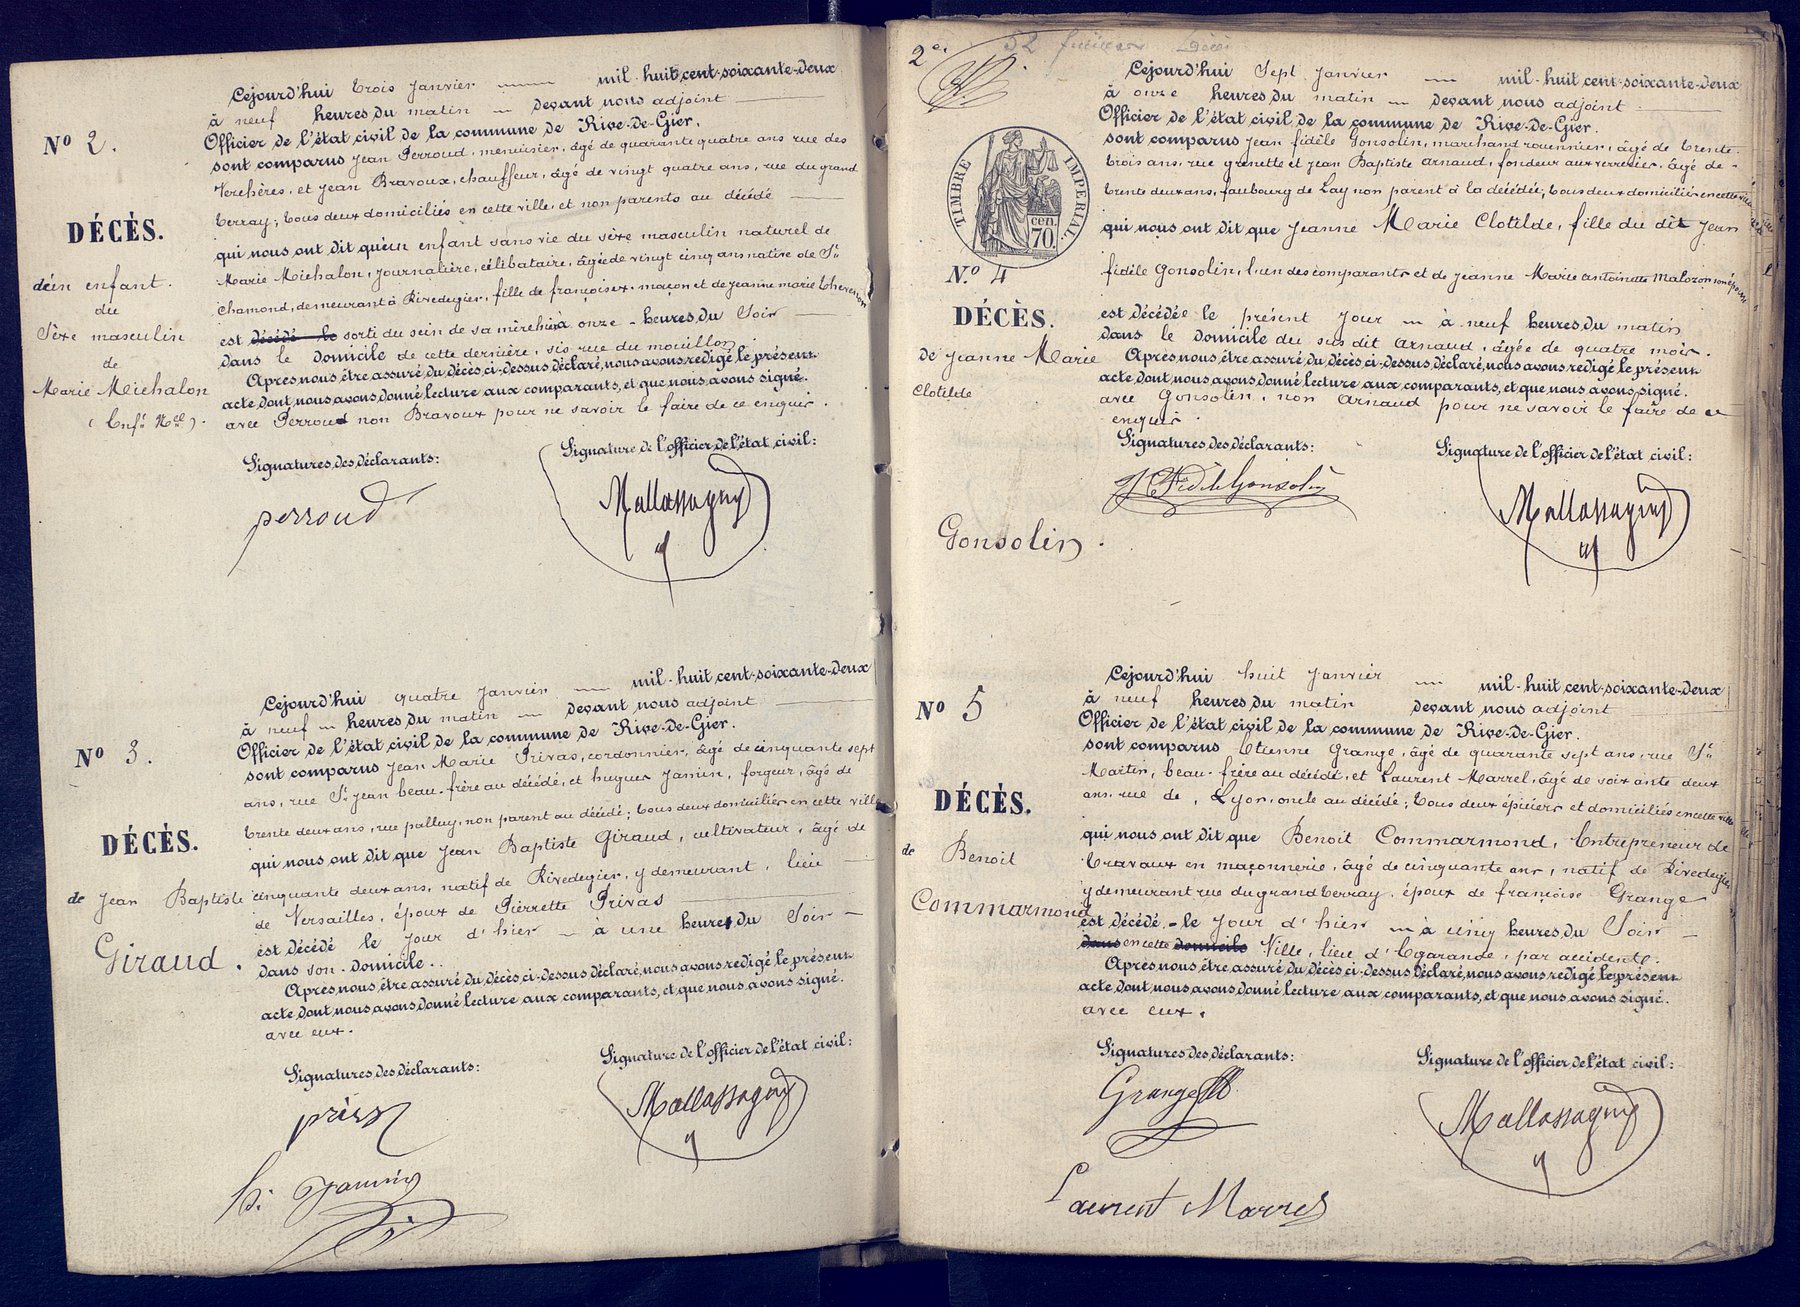 Cejourd'hui trois Janvier mil-huit cent-soixante-deux
à neuf heures du matin devant nous adjoint
Officier de l'état civil de la commune de Rive-de-Gier.
sont comparus Jean Perroud, menuisier, âgé de quarante quatre ans rue des
Verchères, et Jean Bravoux, chauffeur, âgé de vingt quatre ans, rue du grand
terray; tous deux domiciliés en cette ville et non parents au décédé
qui nous ont dit qu'un enfant sans vie du sèxe masculin naturel de
Marie Michalon, journalière, célibataire, âgée de vingt cinq ans native de St.
chamond, demeurant à Rivedegier, fille de françois maçon et de jeanne marie thevenon
est décédé le sorti du sein de sa mère hier à onze heures du Soir
dans le domicile de cette dernière, sis rue du mouillon.
Après nous être assuré du décès ci-dessus déclaré, nous avons redigé le présent
acte dont nous avons donné lecture aux comparants, et que nous avons signé.
avec Perroud non Bravoux pour ne savoir le faire de ce enquis.
Signatures des déclarants:
Signature de l'officier de l'état civil:
perroud
Mallassagny
No 2.
DÉCÈS.
d'un enfant.
du
Sèxe masculin
de
Marie Michalon
(Enft. Nel.)
Cejourd'hui quatre Janvier mil-huit cent-soixante-deux
à neuf heures du matin devant nous adjoint
Officier de l'état civil de la commune de Rive-de-Gier.
sont comparus Jean Marie Privas, cordonnier, âgé de cinquante sept
ans, rue St. Jean beau-frère au décédé, et hugues Janin, forgeur, âgé de
trente deux ans, rue palluy, non parent au décédé; tous deux domiciliés en cette ville
qui nous ont dit que Jean Baptiste Giraud, cultivateur, âgé de
cinquante deux ans, natif de Rivedegier, y demeurant, lieu
de Versailles, époux de Pierrette Privas
est décédé le jour d'hier à une heure du Soir
dans son domicile.
Après nous être assuré du décès ci-dessus déclaré, nous avons redigé le présent
acte dont nous avons donné lecture aux comparants, et que nous avons signé.
avec eux.
Signatures des déclarants:
Signature de l'officier de l'état civil:
Mallassagny
No 3.
DÉCÈS.
de Jean Baptiste
Giraud.
2e.
Cejourd'hui Sept Janvier mil-huit cent-soixante-deux
à onze heures du matin devant nous adjoint
Officier de l'état civil de la commune de Rive-de-Gier.
sont comparus Jean fidèle Gonsolin, marchand rouennier, âgé de trente
trois ans, rue grenette et Jean Baptiste Arnaud, fondeur aux verreries, âgé de
trente deux ans, faubourg de Lay non parent à la décédée; tous deux domiciliés en cette ville
qui nous ont dit que Jeanne Marie Clotilde, fille du dit Jean
fidèle Gonsolin, l'un des comparants et de Jeanne Marie antoinette son épouse
est décédée le présent Jour à neuf heures du matin
dans le domicile du sus dit Arnaud, âgée de quatre mois.
Après nous être assuré du décès ci-dessus déclaré, nous avons redigé le présent
acte dont nous avons donné lecture aux comparants, et que nous avons signé.
avec Gonsolin, non Arnaud pour ne savoir le faire de ce
enquis.
Signatures des déclarants:
Signature de l'officier de l'état civil:
Gonsolin
Mallassagny
TIMBRE IMPERIAL
cen.
70.
No. 4
DÉCÈS.
de Jeanne Marie
Clotilde
Gonsolin.
Cejourd'hui huit Janvier mil-huit cent-soixante-deux
à neuf heures du matin devant nous adjoint
Officier de l'état civil de la commune de Rive-de-Gier.
sont comparus Etienne Grange, âgé de quarante sept ans, rue St.
Martin, beau-frère au décédé, et Laurent Marrel, âgé de soixante deux
ans rue de Lyon, oncle au décédé; tous deux épiciers et domiciliés en cette ville
qui nous ont dit que Benoit Commarmond, Entrepreneur de
travaux en maçonnerie, âgé de cinquante ans, natif de Rivedegier
y demeurant rue du grand terray, époux de françoise Grange
est décédé le jour d'hier à cinq heures du Soir
dans en cette domicile Ville, lieu d'Egarande, par accident.
Après nous être assuré du décès ci-dessus déclaré, nous avons redigé le présent
acte dont nous avons donné lecture aux comparants, et que nous avons signé.
avec eux.
Signatures des déclarants:
Signature de l'officier de l'état civil:
Grange
Mallassagny
Laurent Marrel
No 5
DÉCÈS.
de Benoit
Commarmond